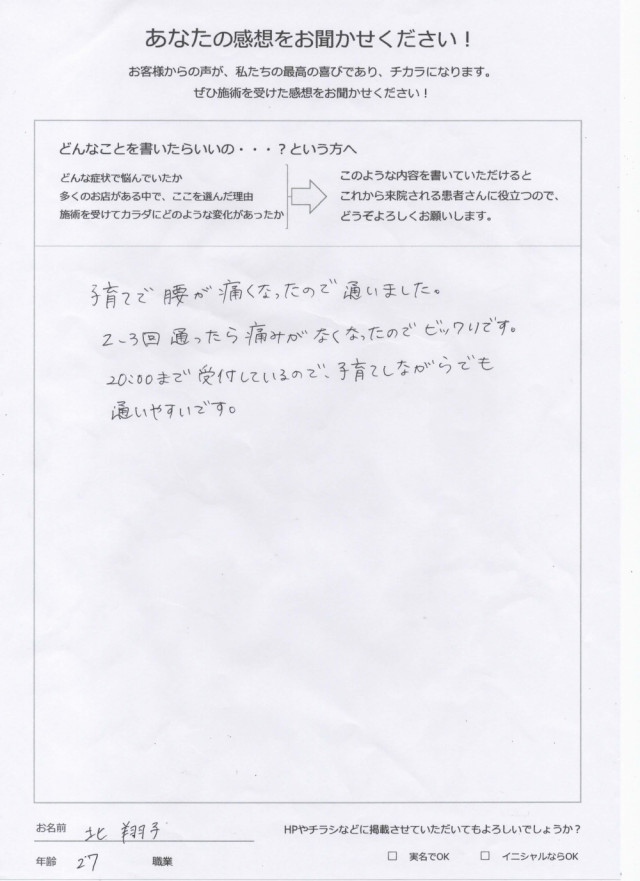 あなたの感想をお聞かせください！
お客様からの声が、私たちの最高の喜びであり、チカラになります。
ぜひ施術を受けた感想をお聞かせください！
どんなことを書いたらいいの・・・？という方へ
どんな症状で悩んでいたか
多くのお店がある中で、ここを選んだ理由
施術を受けてカラダにどのような変化があったか
このような内容を書いていただけると
これから来院される患者さんに役立つので、
どうぞよろしくお願いします。
子育てで腰が痛くなったので通いました。
2~3回通ったら痛みがなくなったのでビックリです。
20:00まで受付しているので、子育てしながらでも
通いやすいです。
お名前 北 翔子
HPやチラシなどに掲載させていただいてもよろしいでしょうか？
年齢 27 職業
□ 実名でOK □ イニシャルならOK